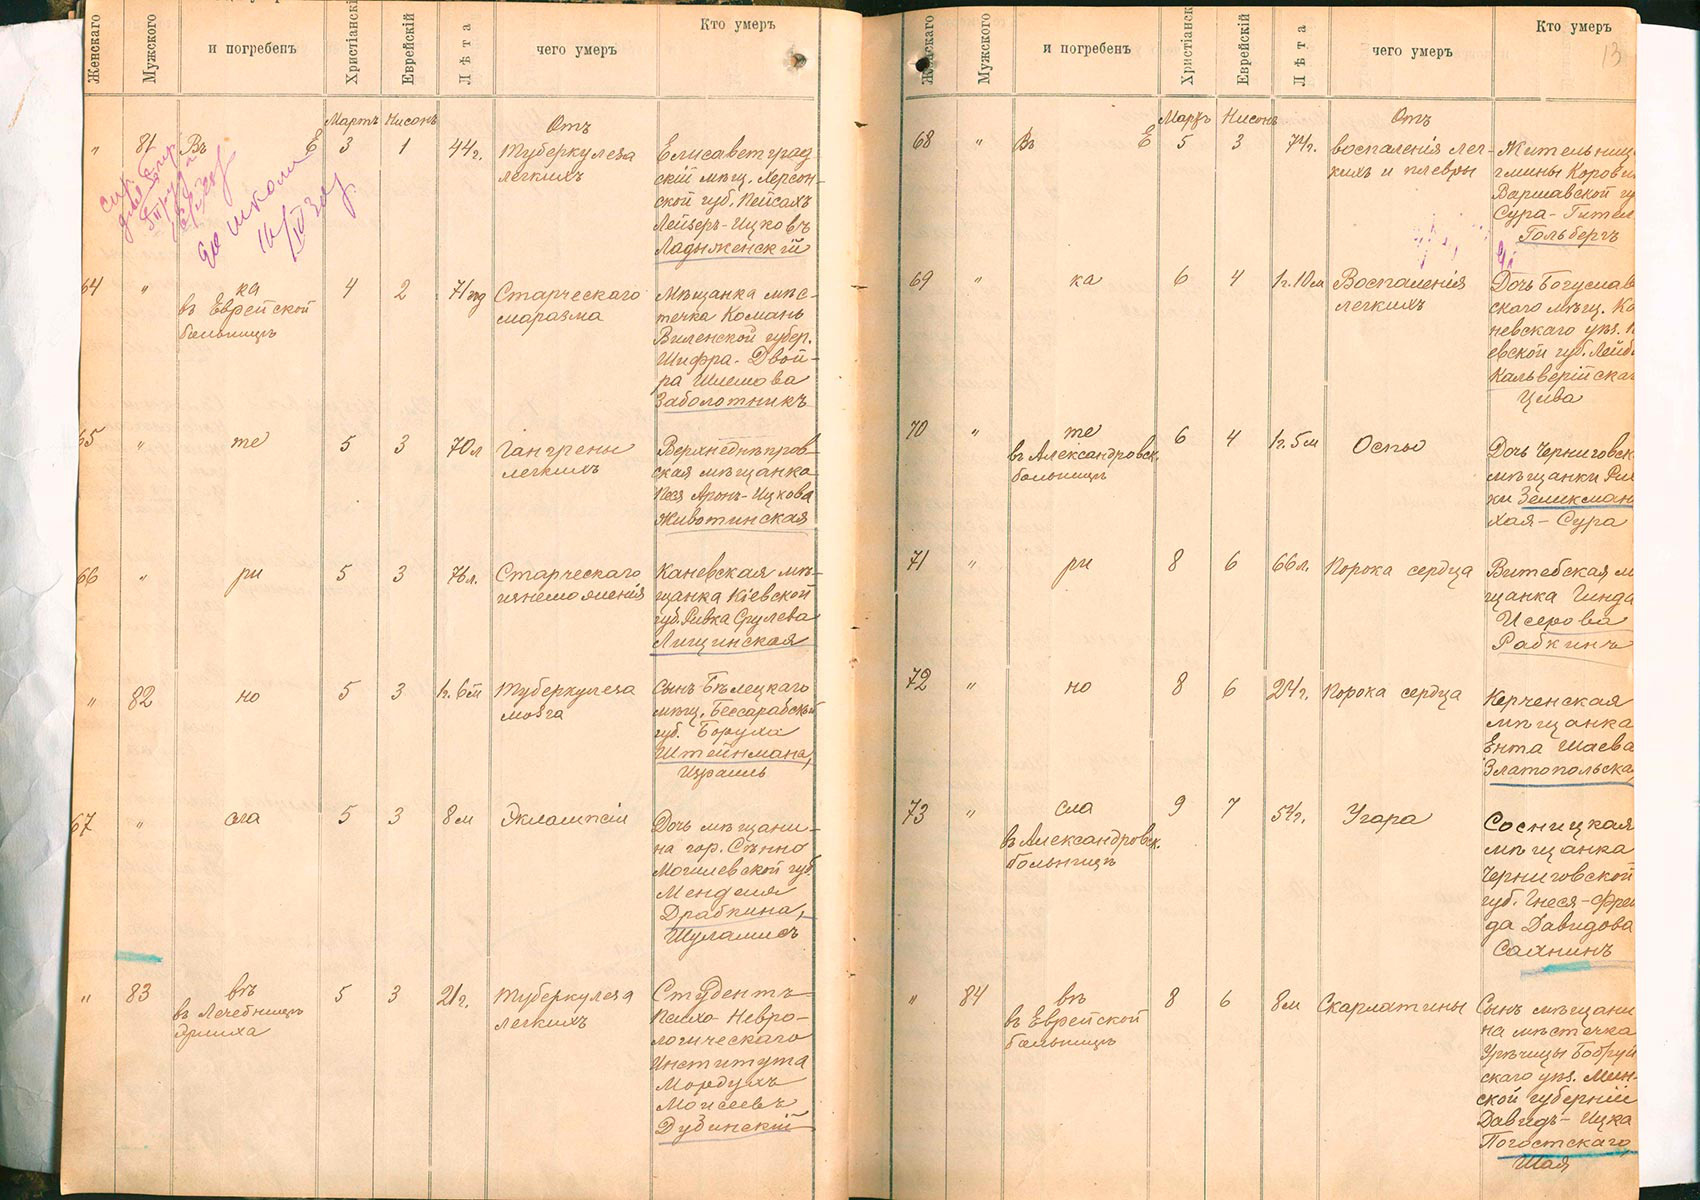 Женскаго
Мужскаго
и погребенъ
Христіанскі
Еврейскій
Лѣта
чего умеръ
Кто умеръ
Мартъ Нисонъ
Отъ
" 81 Въ Е 3 1 44г. Туберкулеза
легкихъ
Елисаветград
скій мѣщ. Херсон-
ской губ. Пейсахъ
Лейзеръ-Ицковъ
Ладыженскій
64 " ка 4 2 71 год Старческаго
въ Еврейской маразма
больницѣ
Мѣщанка мѣс-
течка Комань
Виленской губер.
Шифра-Двой-
ра Шлемова
Заболотникъ
65 " те 5 3 70л Гангрены
легкихъ
Верхнеднѣпров
ская мѣщанка
Песя Аронъ-Ицкова
Животинская
66 " ри 5 3 76л. Старческаго
изнеможенія
Каневская мѣ-
щанка Кіевской
губ. Ривка Срулева
Лищинская
" 82 но 5 3 1г. 6м Туберкулеза
мозга
Сынъ Бѣлецкаго
мѣщ. Бессарабской
губ. Борула
Штейнмана,
Израиль
67 " сла 5 3 8м Эклампсіи
Дочь мѣщани-
на гор. Сѣнно
Могилевской губ.
Менделя
Драбкина,
Шуламисъ
" 83 вѣ 5 3 21г. Туберкулеза
въ Лечебницѣ легкихъ
Студентъ
Психо-Невро-
логическаго
Института
Мордухъ
Моисеевъ
Дубинскій
Женскаго
Мужского
и погребенъ
Христіанск
Еврейскій
Лѣта
чего умеръ
Кто умеръ
13
Мартъ Нисонъ
Отъ
68 " Въ Е 5 3 74г. воспаленія лег-
кихъ и плевры
Жительниц
гмины
Варшавской гу
Сура-Гител
Гольбергъ
69 " ка 6 4 1г. 10м Воспаленія
легкихъ
Дочь Богуслав
скаго мѣщ. Ка
невскаго уѣз. К
евской губ. Лейб
Кальверійскаг
Цива
70 " те 6 4 1г. 5м Оспы
въ Александровск.
больницѣ
Дочь Черниговск
мѣщанки Рив
ки Зеликман
Хая-Сура
71 " ри 8 6 66л. Порока сердца
Витебская м
щанка Гинда
Исерова
Рабкинъ
72 " но 8 6 24г. Порока сердца
Керченская
мѣщанка
Ента Шаева
Златопольска
73 " сла 9 7 54г. Угара
въ Александровск.
больницѣ
Сосницкая
мѣщанка
Черниговской
губ. Гнеся-Фрей
да Давидова
Саянинъ
" 84 вѣ 8 6 8м Скарлатины
въ Еврейской
больницѣ
Сынъ мѣщани
на мѣстечка
Урѣчицы Бобруй
скаго уѣз. Мин-
ской губерніи
Давидъ-Ицка
Погостскаго,
Шая